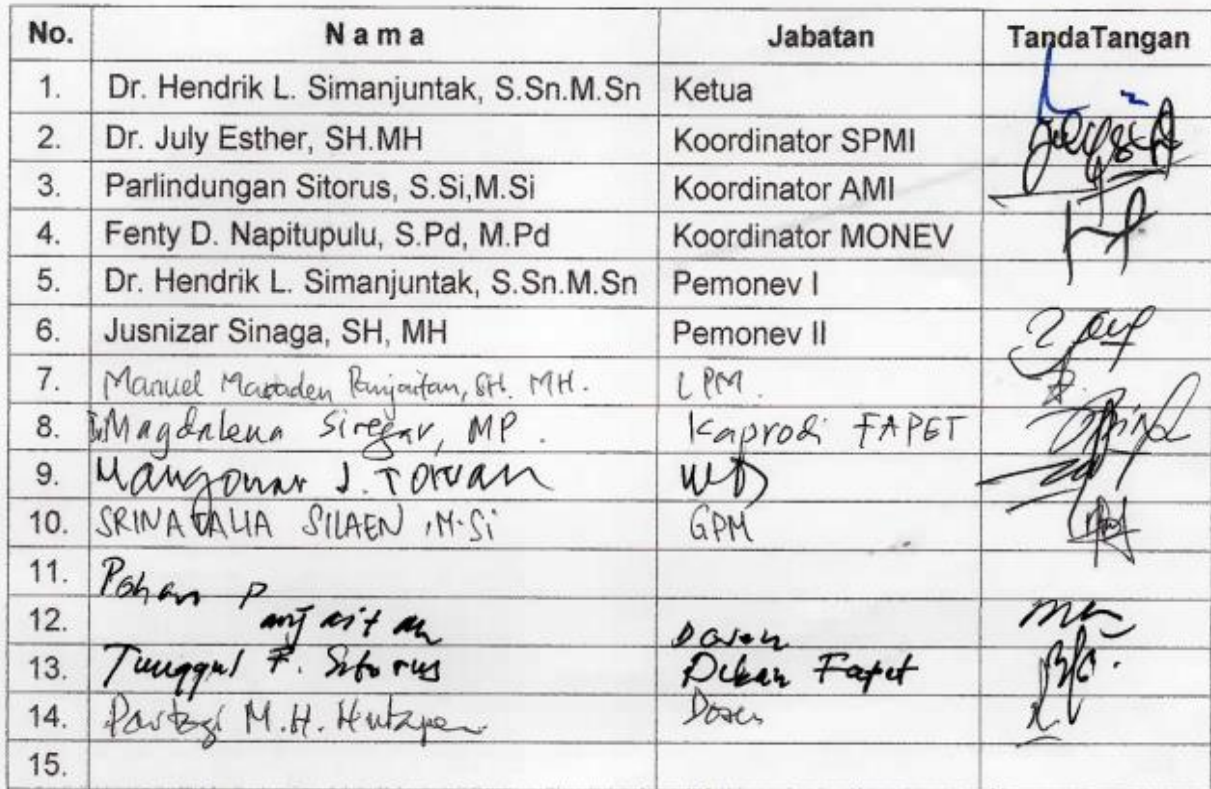 No. Nama Jabatan TandaTangan
1. Dr. Hendrik L. Simanjuntak, S.Sn.M.Sn Ketua
2. Dr. July Esther, SH.MH Koordinator SPMI
3. Parlindungan Sitorus, S.Si,M.Si Koordinator AMI
4. Fenty D. Napitupulu, S.Pd, M.Pd Koordinator MONEV
5. Dr. Hendrik L. Simanjuntak, S.Sn.M.Sn Pemonev I
6. Jusnizar Sinaga, SH, MH Pemonev II
7. Manuel Panjaitan, SH. MH. LPM.
8. Magdalena Siregar, MP. Kaprodi FAPET
9. J.
10. SRINATALIA SILAEN, M.Si GPM
11. Pohan P
12. anjaitan Dosen
13. Tunggul F. Sitorus Dekan Fapet
14. M.H. Dosen
15.